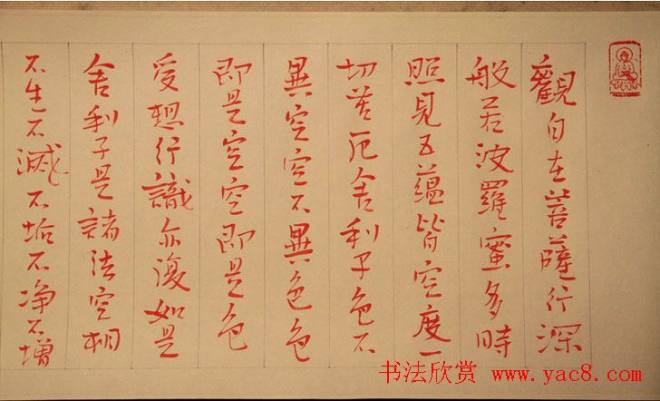 觀自在菩薩行深
般若波羅蜜多時
照見五蘊皆空度一
切苦厄舍利子色不
異空空不異色色
即是空空即是色
受想行識亦復如是
舍利子是諸法空相
不生不滅不垢不净不增
书法欣赏 www.yac8.com